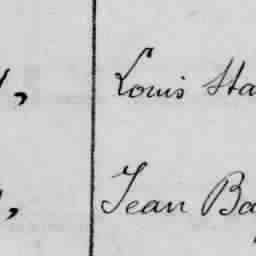 Louis Sta
Jean Ba